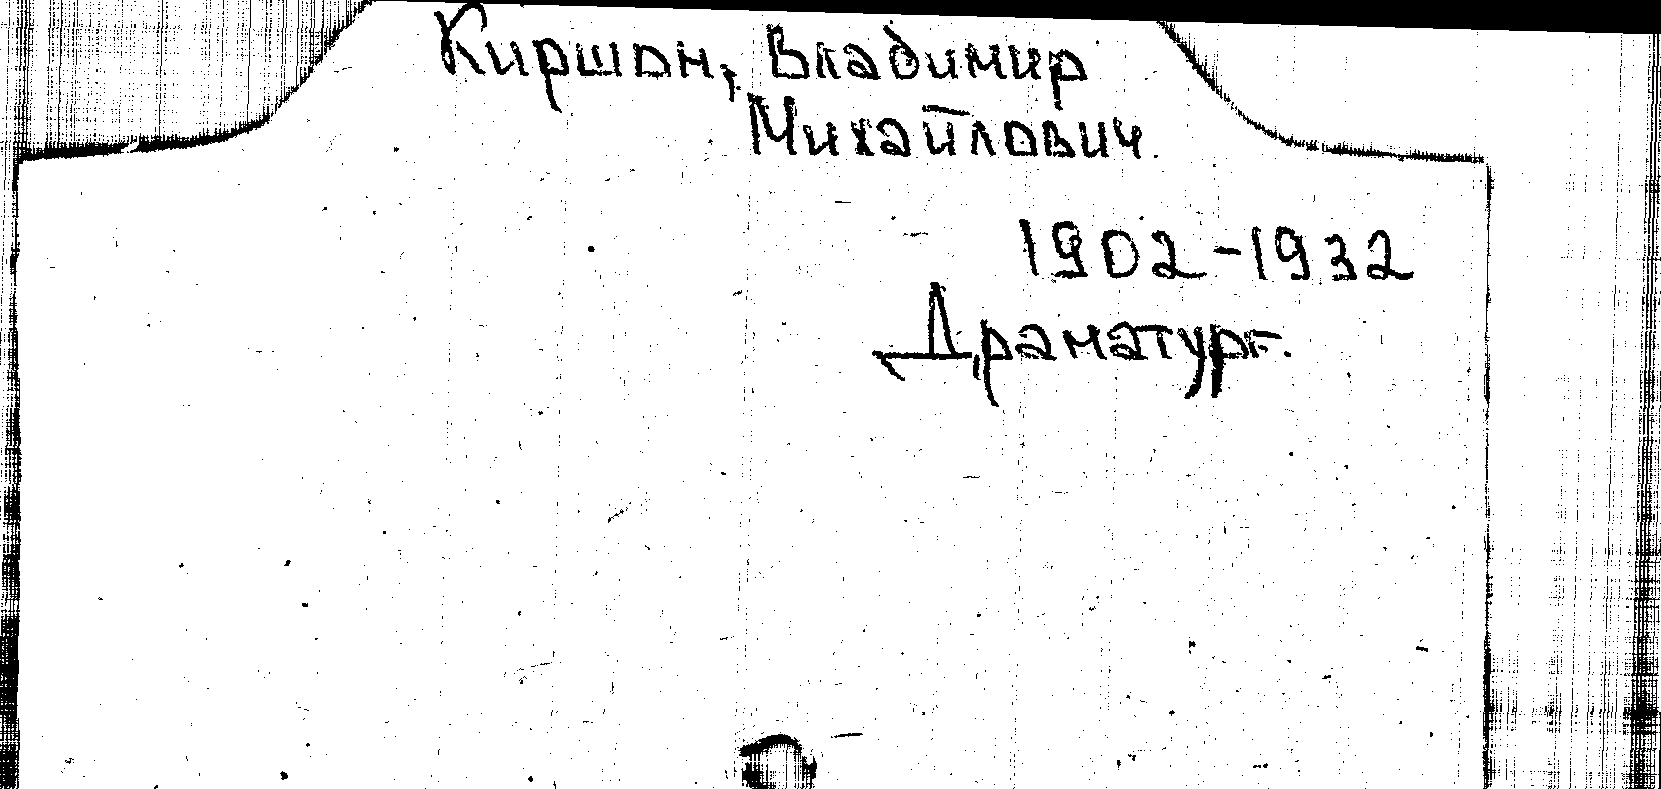 Киршон, Владимир
Михайлович
1902-1932
Драматург.